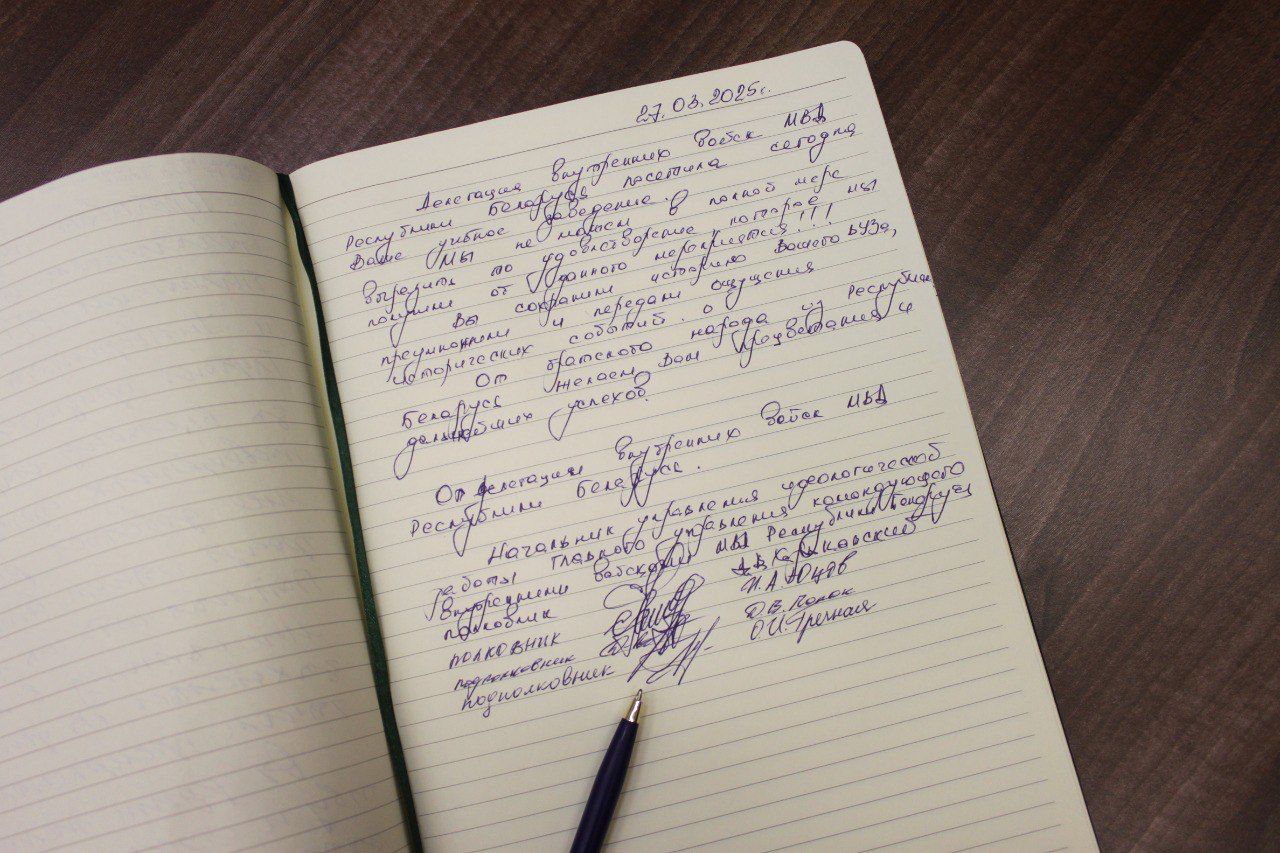 27.03.2025г.
Делегация внутренних войск МВД
Республики Беларусь посетила сегодня
Ваше учебное заведение.
Мы не можем в полной мере
выразить то удовлетворение которое мы
получили от данного мероприятия!!!
Вы сохранили историю Вашего ВУЗа,
преумножили и передали ощущения
исторических событий.
От братского народа из Республики
Беларусь желаем Вам процветания и
дальнейших успехов.
От делегации внутренних войск МВД
Республики Беларусь.
Начальник управления идеологической
работы главного управления командующего
внутренними войсками МВД Республики Беларусь
полковник
полковник И.А.
подполковник Д.В. Попок
подполковник О.И. Гречная